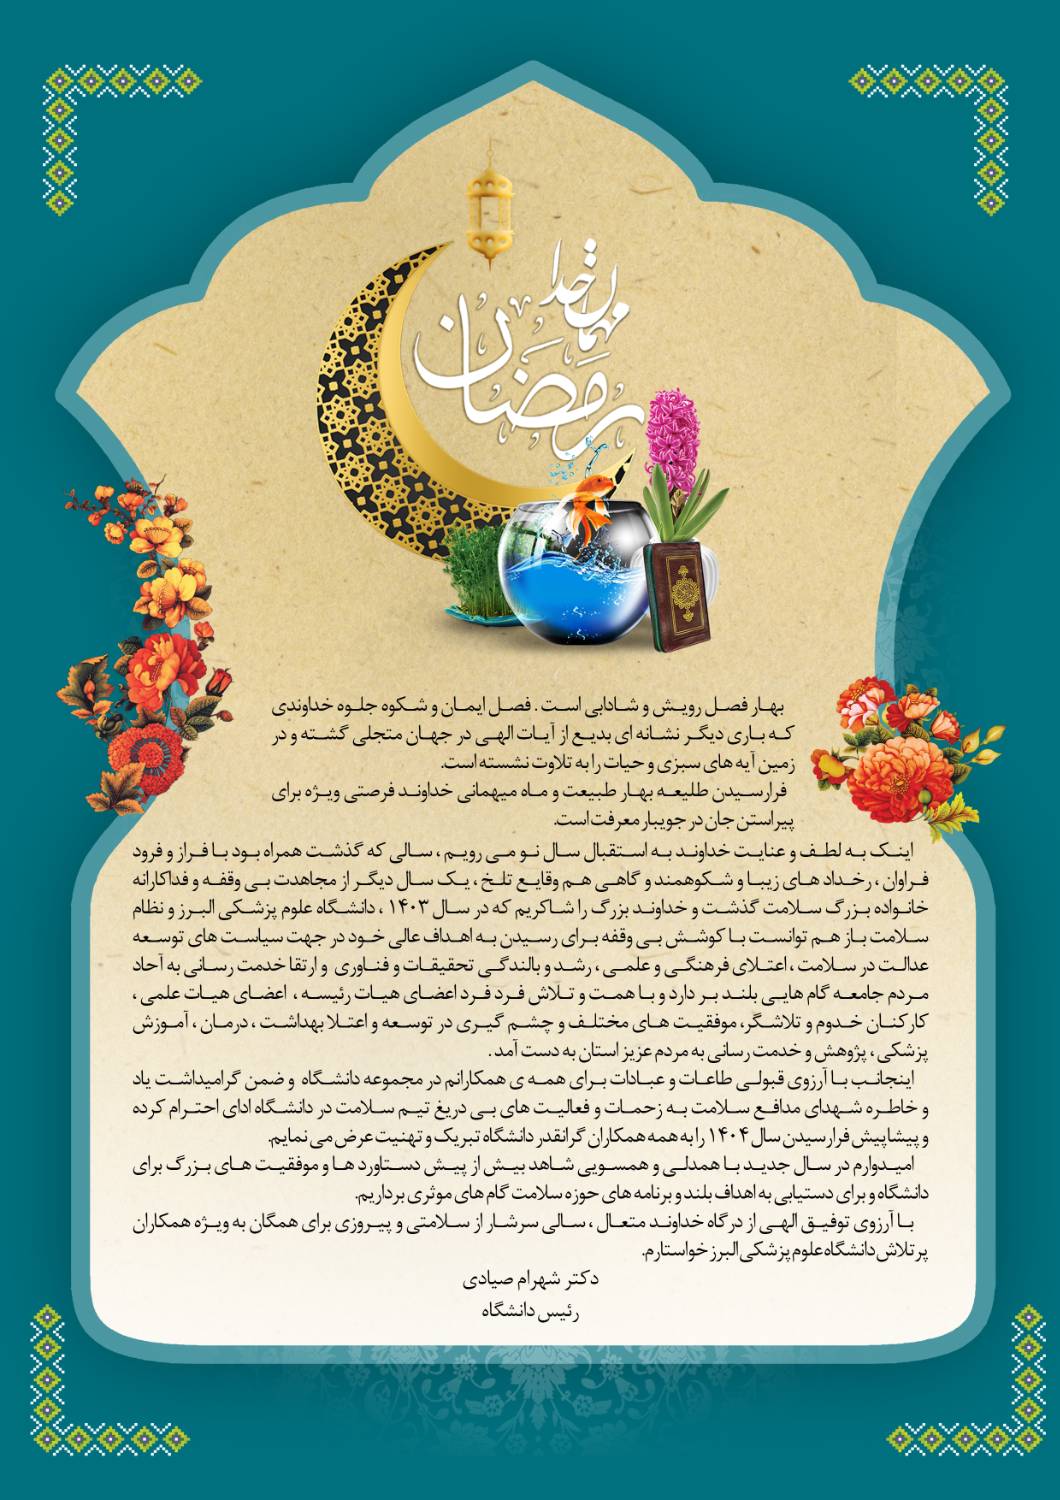 مهمان خدا
رمضان
بهار فصل رویش و شادابی است . فصل ایمان و شکوه جلوه خداوندی
که باری دیگر نشانه ای بدیع از آیات الهی در جهان متجلی گشته و در
زمین آیه های سبزی و حیات را به تلاوت نشسته است.
فرارسیدن طلیعه بهار طبیعت و ماه میهمانی خداوند فرصتی ویژه برای
پیراستن جان در جویبار معرفت است.
اینک به لطف و عنایت خداوند به استقبال سال نو می رویم ، سالی که گذشت همراه بود با فراز و فرود
فراوان ، رخداد های زیبا و شکوهمند و گاهی هم وقایع تلخ ، یک سال دیگر از مجاهدت بی وقفه و فداکارانه
خانواده بزرگ سلامت گذشت و خداوند بزرگ را شاکریم که در سال ۱۴۰۳ ، دانشگاه علوم پزشکی البرز و نظام
سلامت باز هم توانست با کوشش بی وقفه برای رسیدن به اهداف عالی خود در جهت سیاست های توسعه
عدالت در سلامت ، اعتلای فرهنگی و علمی ، رشد و بالندگی تحقیقات و فناوری و ارتقا خدمت رسانی به آحاد
مردم جامعه گام هایی بلند بر دارد و با همت و تلاش فرد فرد اعضای هیات رئیسه ، اعضای هیات علمی ،
کارکنان خدوم و تلاشگر، موفقیت های مختلف و چشم گیری در توسعه و اعتلا بهداشت ، درمان ، آموزش
پزشکی ، پژوهش و خدمت رسانی به مردم عزیز استان به دست آمد .
اینجانب با آرزوی قبولی طاعات و عبادات برای همه ی همکارانم در مجموعه دانشگاه و ضمن گرامیداشت یاد
و خاطره شهدای مدافع سلامت به زحمات و فعالیت های بی دریغ تیم سلامت در دانشگاه ادای احترام کرده
و پیشاپیش فرارسیدن سال ۱۴۰۴ را به همه همکاران گرانقدر دانشگاه تبریک و تهنیت عرض می نمایم.
امیدوارم در سال جدید با همدلی و همسویی شاهد بیش از پیش دستاورد ها و موفقیت های بزرگ برای
دانشگاه و برای دستیابی به اهداف بلند و برنامه های حوزه سلامت گام های موثری برداریم.
با آرزوی توفیق الهی از درگاه خداوند متعال ، سالی سرشار از سلامتی و پیروزی برای همگان به ویژه همکاران
پرتلاش دانشگاه علوم پزشکی البرز خواستارم.
دکتر شهرام صیادی
رئیس دانشگاه